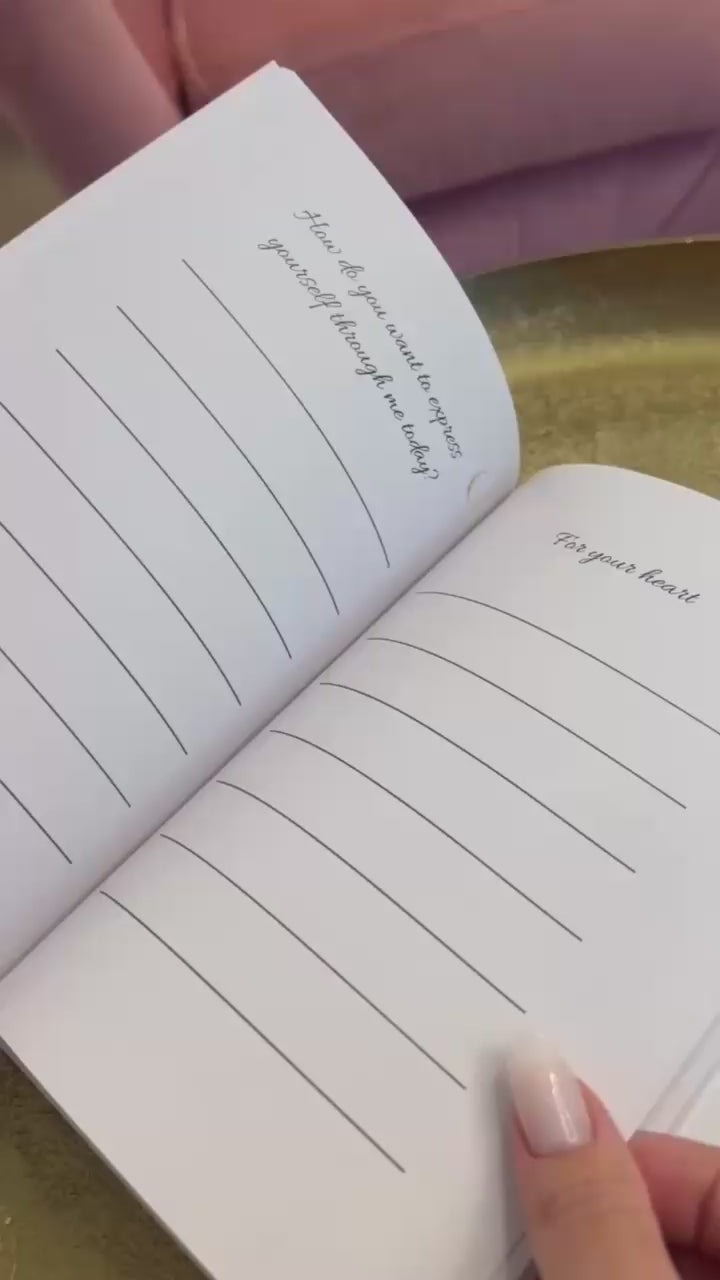 How do you want to express
yourself through me today?
For your heart